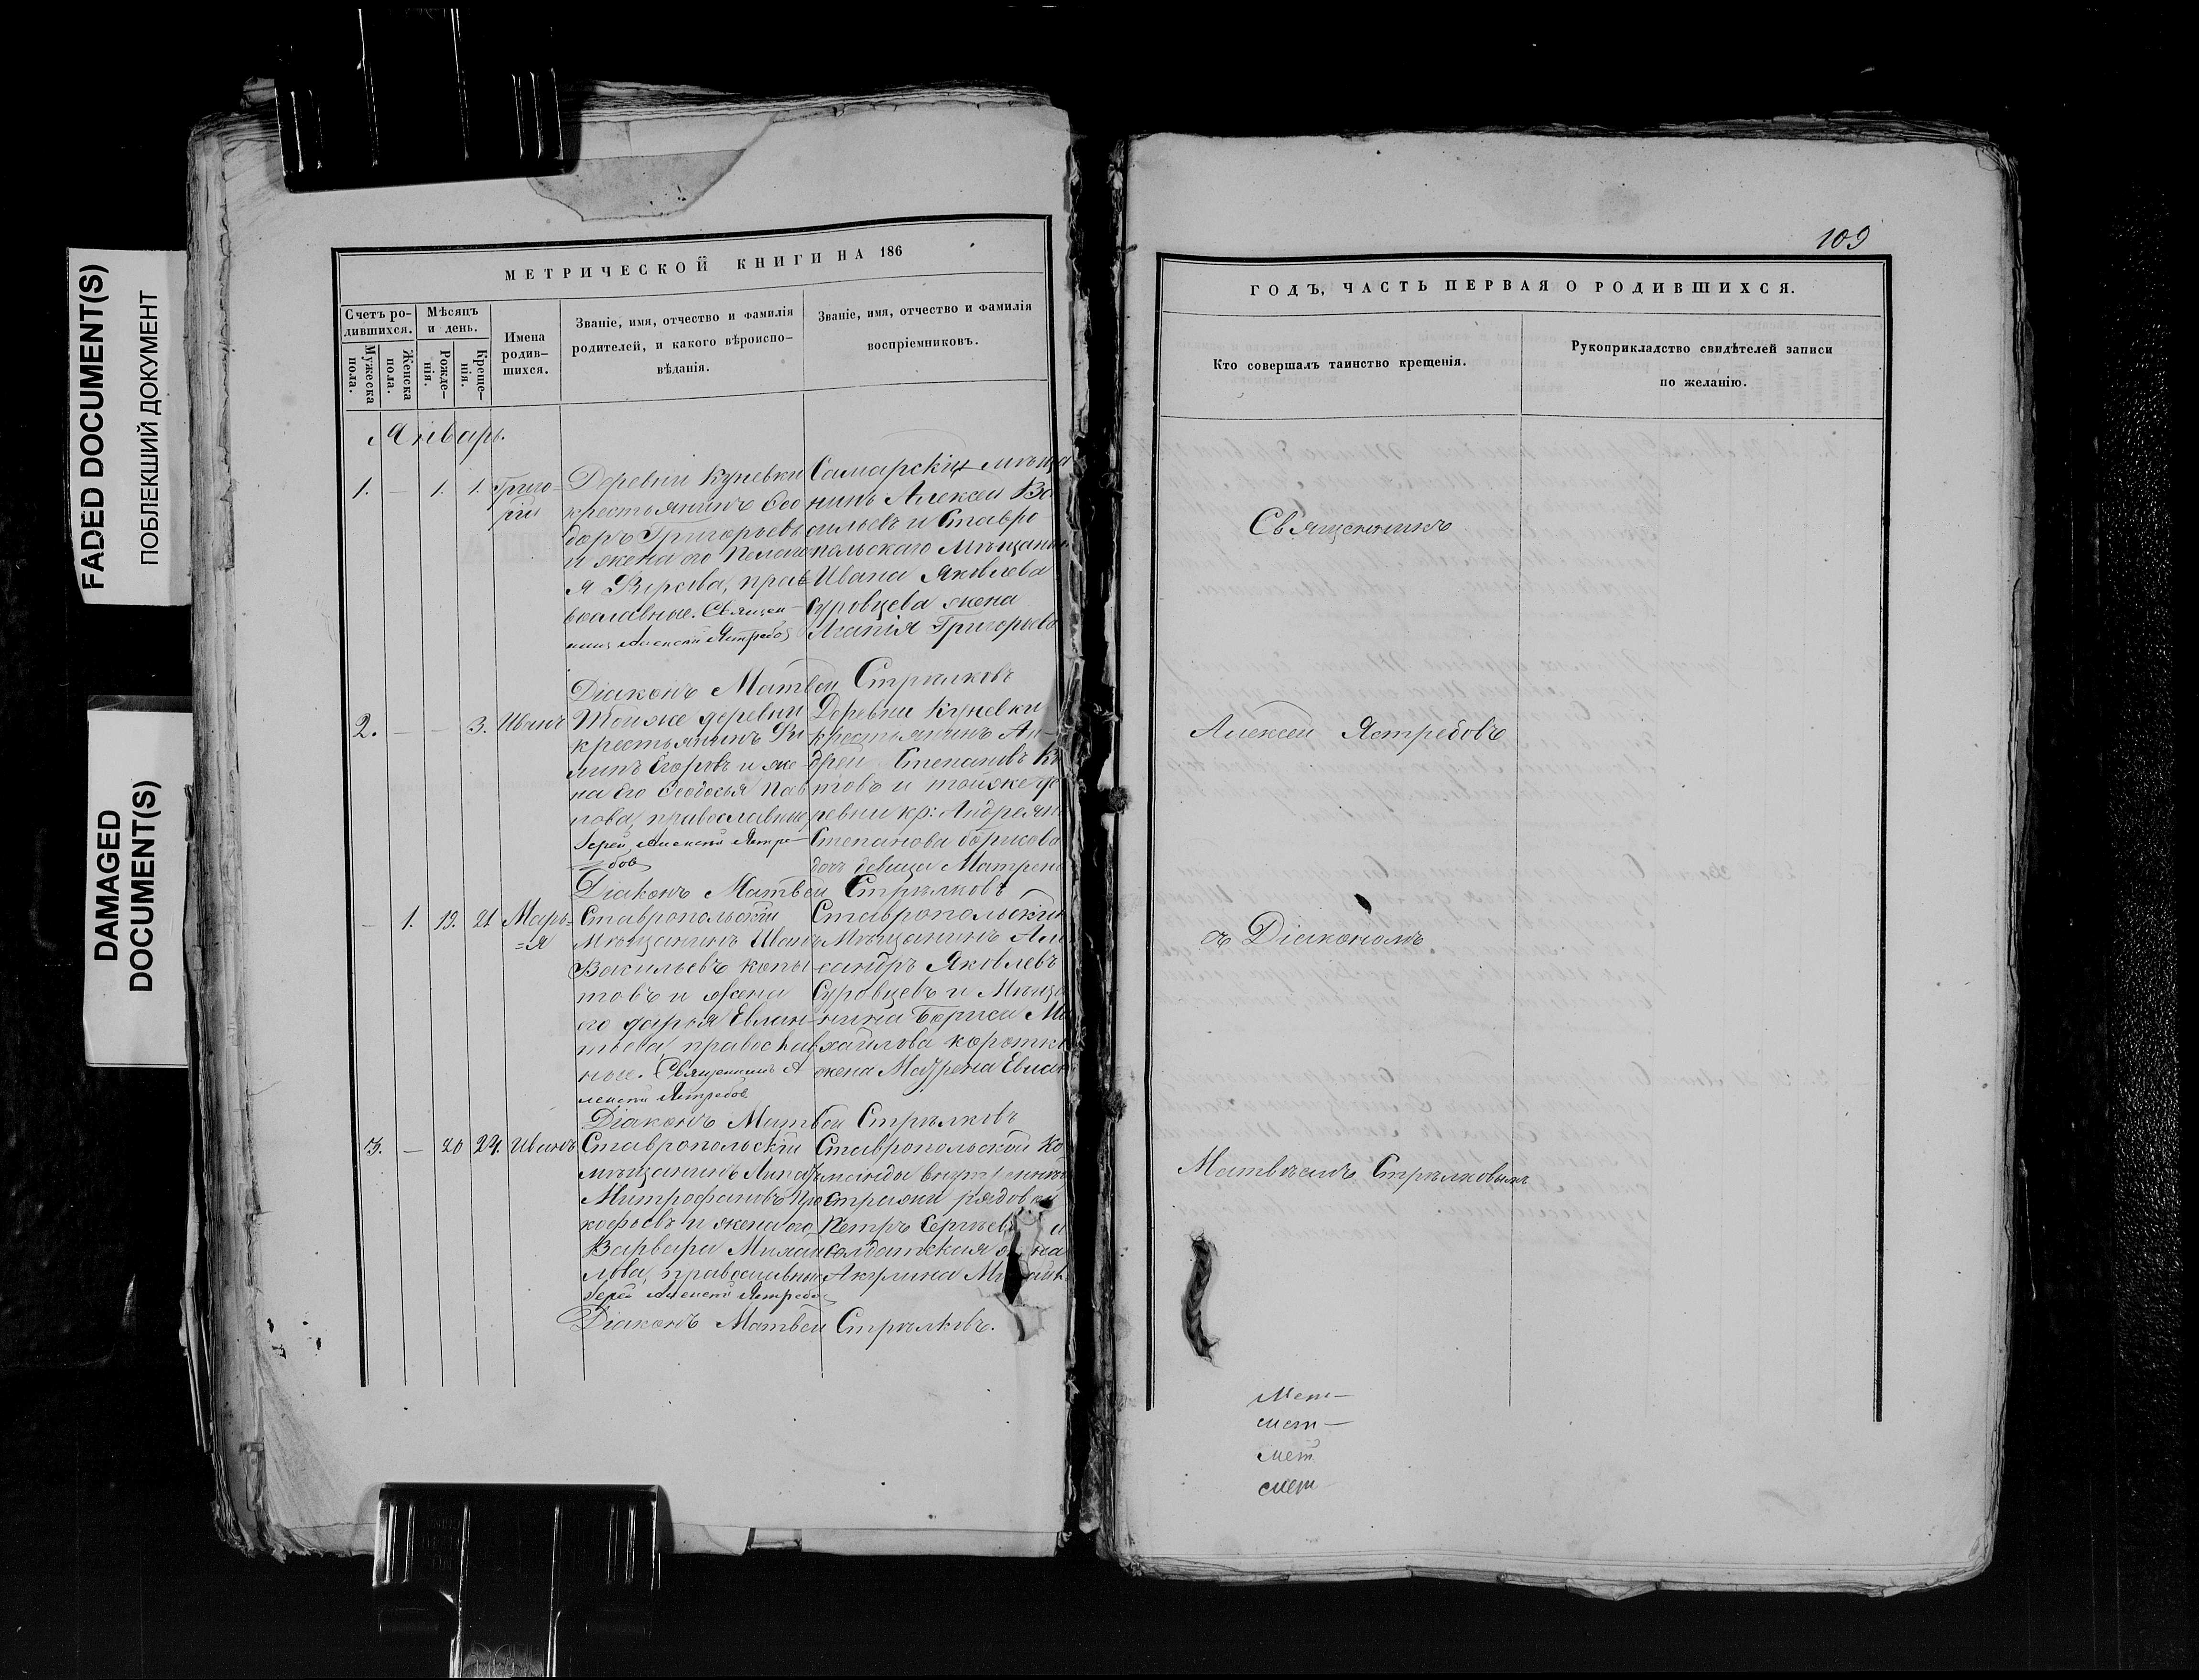 FADED DOCUMENT(S)
ПОБЛЕКШИЙ ДОКУМЕНТ
DAMAGED
DOCUMENT(S)
МЕТРИЧЕСКОЙ КНИГИ НА 186
Счетъ ро-
дившихся.
Мужеска
пола.
Женска
пола.
Мѣсяцъ
и день.
Рожде-
нія.
Креще-
нія.
Имена
родив-
шихся.
Званіе, имя, отчество и фамилія
родителей, и какого вѣроиспо-
вѣданія.
Званіе, имя, отчество и фамилія
воспріемниковъ.
Январь.
1. — 1. 1. Григо-
рій
Деревни Куневки
крестьянинъ Ѳео
доръ Григорьевъ
и жена его Пелаге
я Фирсова, прав
вославные. Священ-
никъ Алексей Ястребов
Самарскій мѣща
нинъ Алексей Ва
сильевъ и Ставро
польскаго мѣщани
Ивана Яковлева
Суровцева жена
Агапія Григорьева
Діаконъ Матвей Стрѣлковъ
2. — — 3. Иванъ
Тойже деревни
крестьянинъ Фи
липъ Егоровъ и же
на его Ѳеодосья Пав
лова, православные
Іерей Алексей Ястре-
бов
Деревни Куневки
крестьянинъ Ан-
дрей Степановъ
и тойже де
ревни кр: Андреян
Степанова Борисова
дочь девица Матрена
Діаконъ Матвей Стрѣлковъ
— 1. 19. 21 Марь=
=я
Ставропольскій
Мѣщанинъ Иванъ
Васильевъ Копы
товъ и жена
его Дарья Евлан-
пьева, православ
ные. Священникъ А
лексей Ястребов
Ставропольскій
Мѣщанинъ Але
сандръ Яковлевъ
Суровцевъ и Мѣща
нина Бориса Ми
хайлова Коротко
жена Матрена Евлан
Діаконъ Матвей Стрѣлковъ
3. — 20 24. Иванъ
Ставропольскій
мѣщанинъ
Митрофановъ Про
кофьевъ и жена его
Варвара Михаи
лова, православные
Іерей Алексей Ястребов
Ставропольской Ко
манды внутренней
стражи рядовой
Петръ Сергѣевъ и
солдатская жена
Акулина Михайл
Діаконъ Матвей Стрѣлковъ.
109
ГОДЪ, ЧАСТЬ ПЕРВАЯ О РОДИВШИХСЯ.
Кто совершалъ таинство крещенія.
Рукоприкладство свидѣтелей записи
по желанію.
Священникъ
Алексей Ястребовъ
съ Діакономъ
Матвѣемъ Стрѣлковымъ